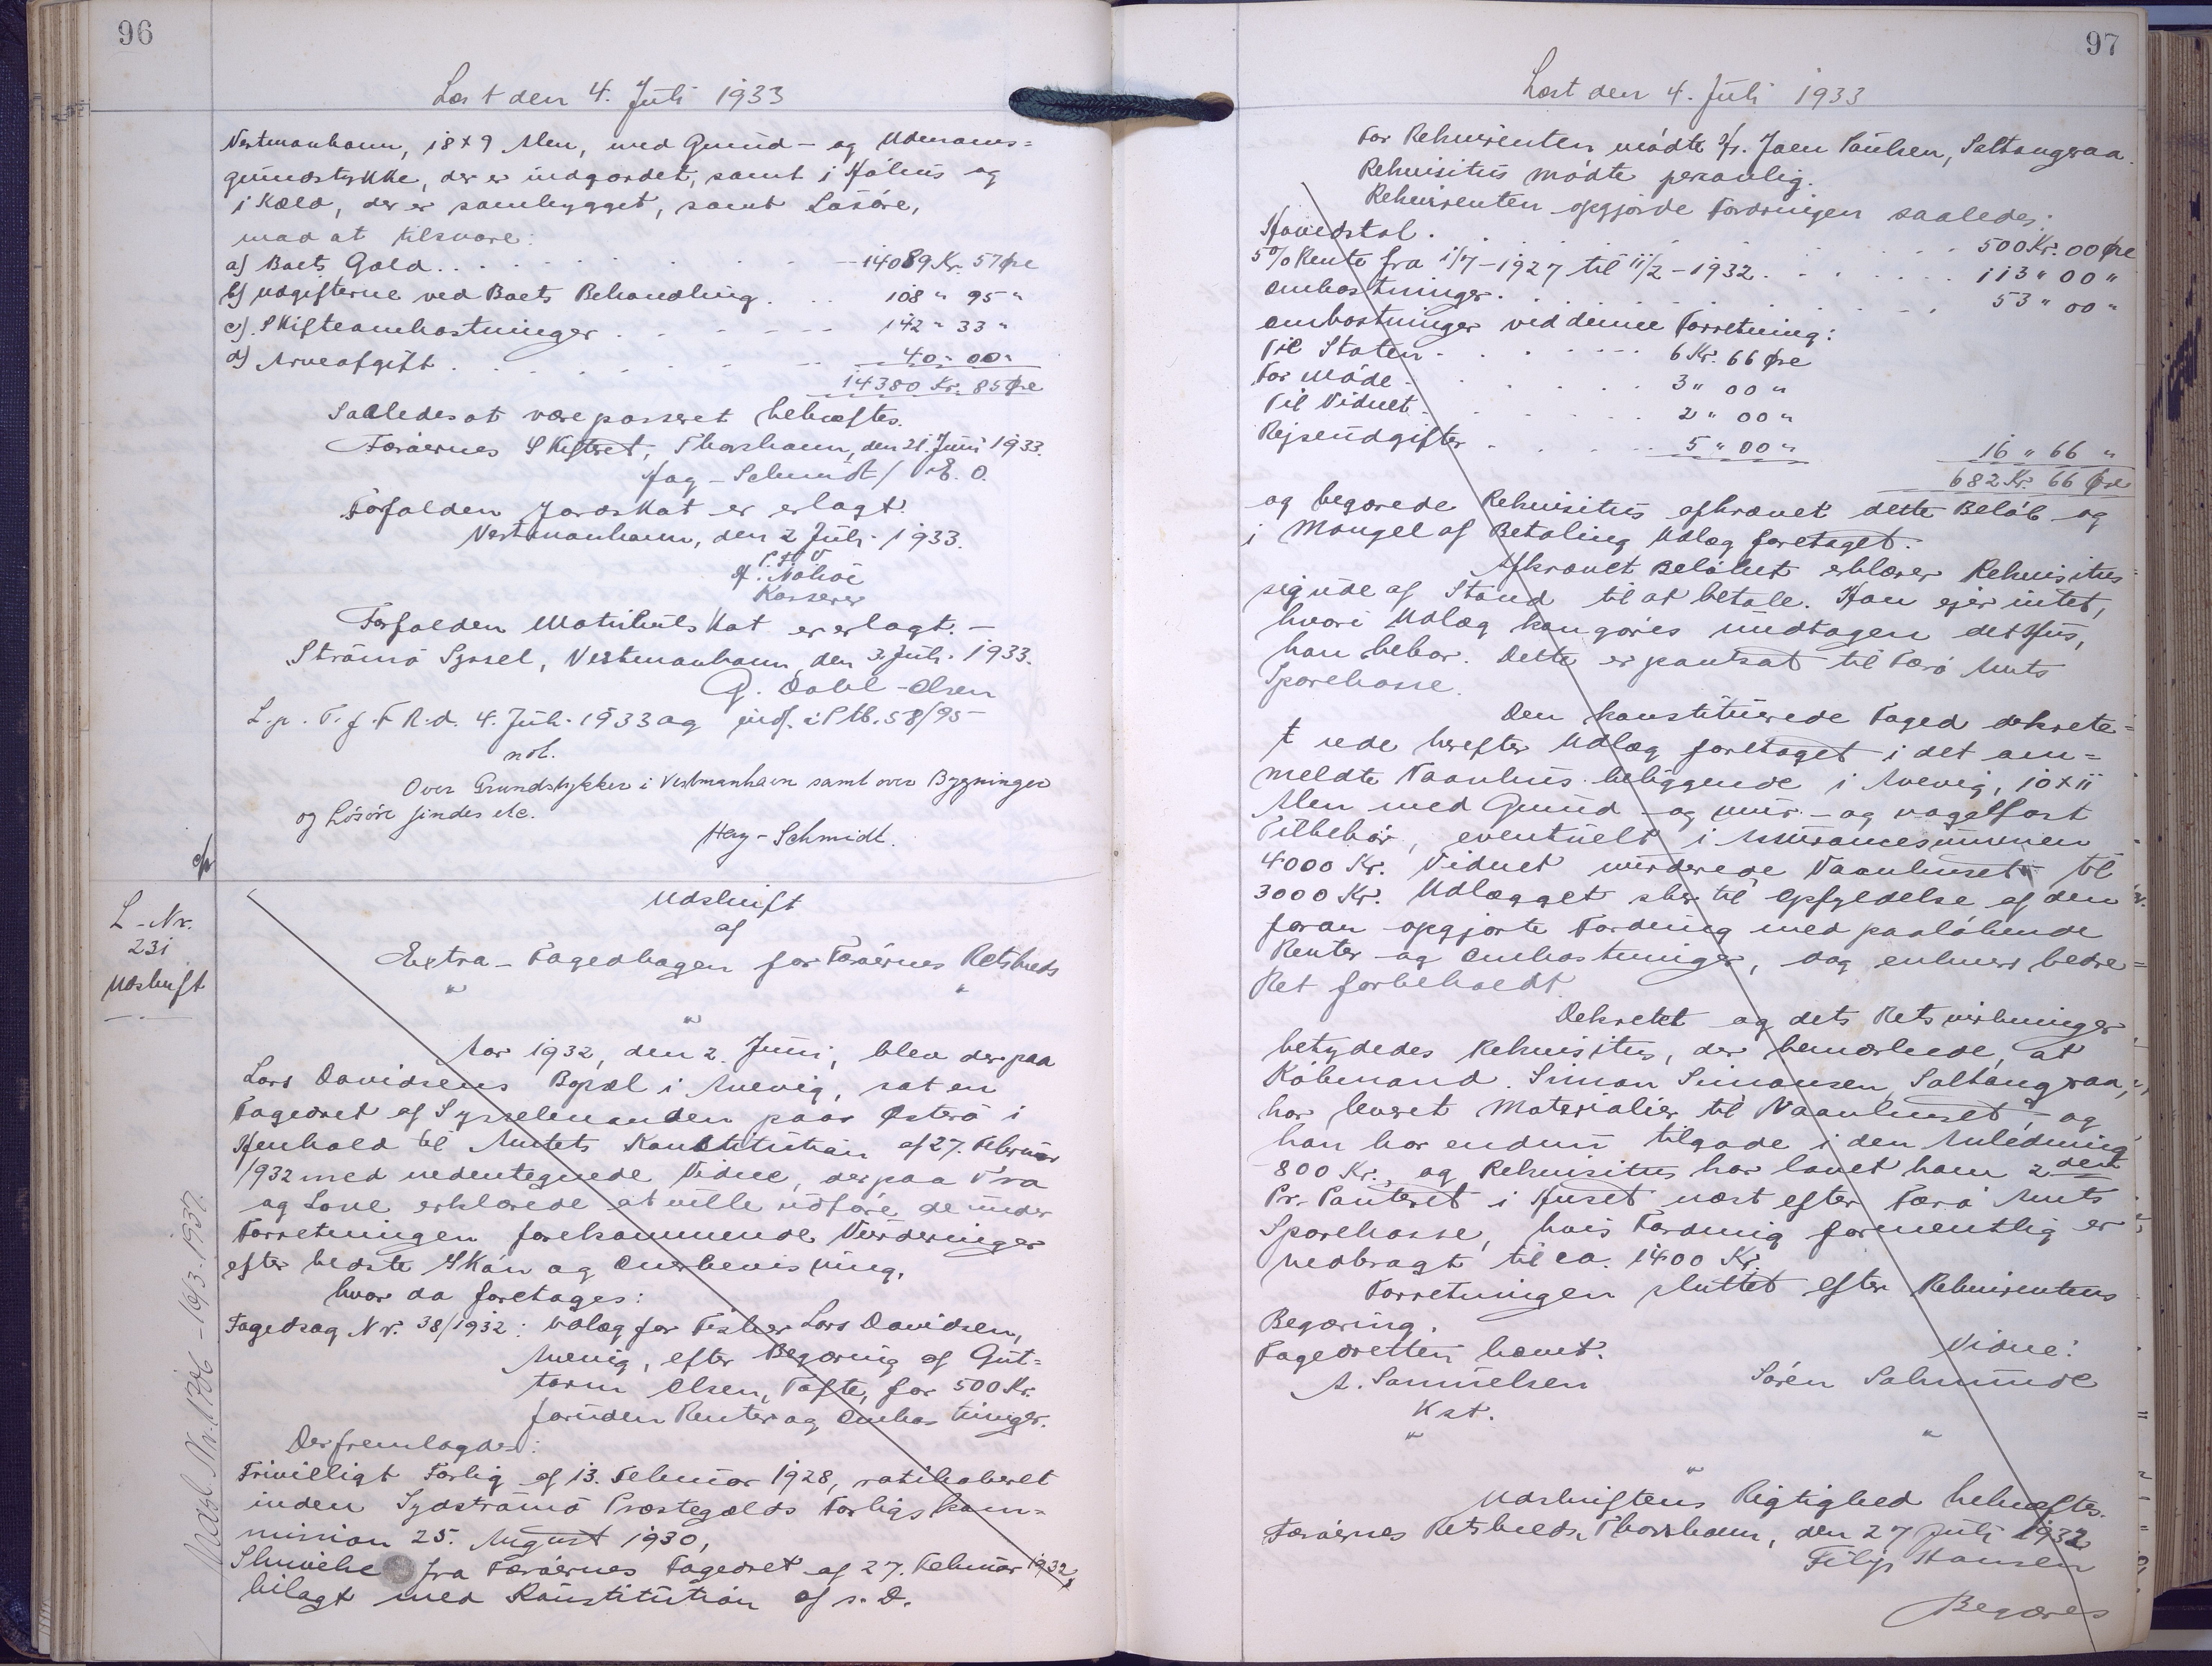 96
Læst den 4. Juli 1933
Vestmanhavn, 18x9 Alen, med Grund- og Udenoms=
grundstykke, der er indgærdet, samt i Hølhus og
i Kæld, der er sambygget, samt Løsøre,
mod at tilsvare:
a) Boets Gæld . . . 14089 Kr. 57 Øre
b) Udgifterne ved Boets Behandling . . . 108 " 95 "
c) Skifteomkostninger . . . 142 " 33 "
d) Arveafgift . . . 40 " 00 "
14380 Kr. 85 Øre
Saaledes at være passeret bekræftes.
Færøernes Skifteret, Thorshavn, den 21. Juni 1933.
Høy-Schmidt / E. O.
Forfalden Jordskat er erlagt.
Vestmanhavn, den 2 Juli 1933.
Kasserer
Forfalden Matrikulskat er erlagt. -
Strømø Syssel, Vestmanhavn, den 3. Juli 1933.
G. Dahl-Olsen
L. p. T. f. F. R. d. 4. Juli 1933 og indf. i S. Pb. 58/95
not.
Over Grundstykker i Vestmanhavn samt over Bygninger
og Løsøre findes etc.
Høy-Schmidt.
L - Nr.
231
Udskrift
Udskrift
af
Extra-Fogedbogen for Færøernes Retskreds
" "
"
Aar 1932, den 2. Juni, blev der paa
Lars Davidsens Bopæl i Arevig, sat en
Fogedret af Sysselmanden paa Østerø i
Henhold til Amtets Konstitution af 27. Februar
1932 med undertegnede Vidne, der paa Tro
og Love erklærede at ville udføre de under
Forretningen forekommende Vurderinger
efter bedste Skøn og Overbevisning.
hvor da foretoges:
Fogedsag Nr. 38/1932: Udlæg for Fisker Lars Davidsen,
Arevig, efter Begæring af Gut=
torm Olsen, Tofte, for 500 Kr.
foruden Renter og Omkostninger.
Der fremlagdes:
Frivilligt Forlig af 13. Februar 1928, ratihaberet
inden Sydstrømø Præstegælds Forligskom=
mission 25. August 1930,
Skrivelse fra Færøernes Fogedret af 27. Februar 1932,
bilagt med Konstitution af s. D.
97
Læst den 4. Juli 1933
For Rekvirenten mødte Hr. Joen Poulsen, Saltangeraa.
Rekvisitus mødte personlig.
Rekvirenten opgjorde Fordringen saaledes:
Hovedstol . . . 500 Kr. 00 Øre
5% Rente fra 1/7-1927 til 11/2-1932 . . . 113 " 00 "
Omkostninger . . . 53 " 00 "
Omkostninger ved denne Forretning:
Til Staten . . . 6 Kr. 66 Øre
For Møde . . . 3 " 00 "
Til Vidnet . . . 2 " 00 "
Rejseudgifter . . . 5 " 00 " 16 " 66 "
682 Kr. 66 Øre
og begærede Rekvisitus afkrævet dette Beløb og
i Mangel af Betaling Udlæg foretaget.
Afkrævet Beløbet erklærer Rekvisitus
sig ude af Stand til at betale. Han ejer intet,
hvori Udlæg kan gøres undtagen det Hus,
han bebor. Dette er pantsat til Færø Amts
Sparekasse.
Den konstituerede Foged dekrete=
rede herefter Udlæg foretaget i det om=
meldte Vaanhus beliggende i Arevig, 10x11
Alen med Grund- og mur- og nagelfast
Tilbehør, eventuelt i Assurancesummen
4000 Kr. Vidnet vurderede Vaanhuset til
3000 Kr. Udlægget sker til Opfyldelse af den
foran opgjorte Fordring med paaløbende
Renter og Omkostninger, dog enhvers bedre=
Ret forbeholdt.
Dekretet og dets Retsvirkninger
betydedes Rekvisitus, der bemærkede, at
Købmand Simon Simonsen, Saltangeraa,
har leveret Materialier til Vaanhuset, og
han har endnu tilgode i den Anledning
800 Kr., og Rekvisitus har lovet ham 2den
Pr. Panteret i Huset næst efter Færø Amts
Sparekasse, hvis Fordring formentlig er
nedbragt til ca. 1400 Kr.
Forretningen sluttet efter Rekvirentens
Begæring.
Fogedretten hævet. Vidne:
A. Samuelsen Søren Salmunde
Kst.
" "
"
Udskriftens Rigtighed bekræftes.
Færøernes Retskreds, Thorshavn, den 27 Juli 1932
Filip Hansen
Begæres